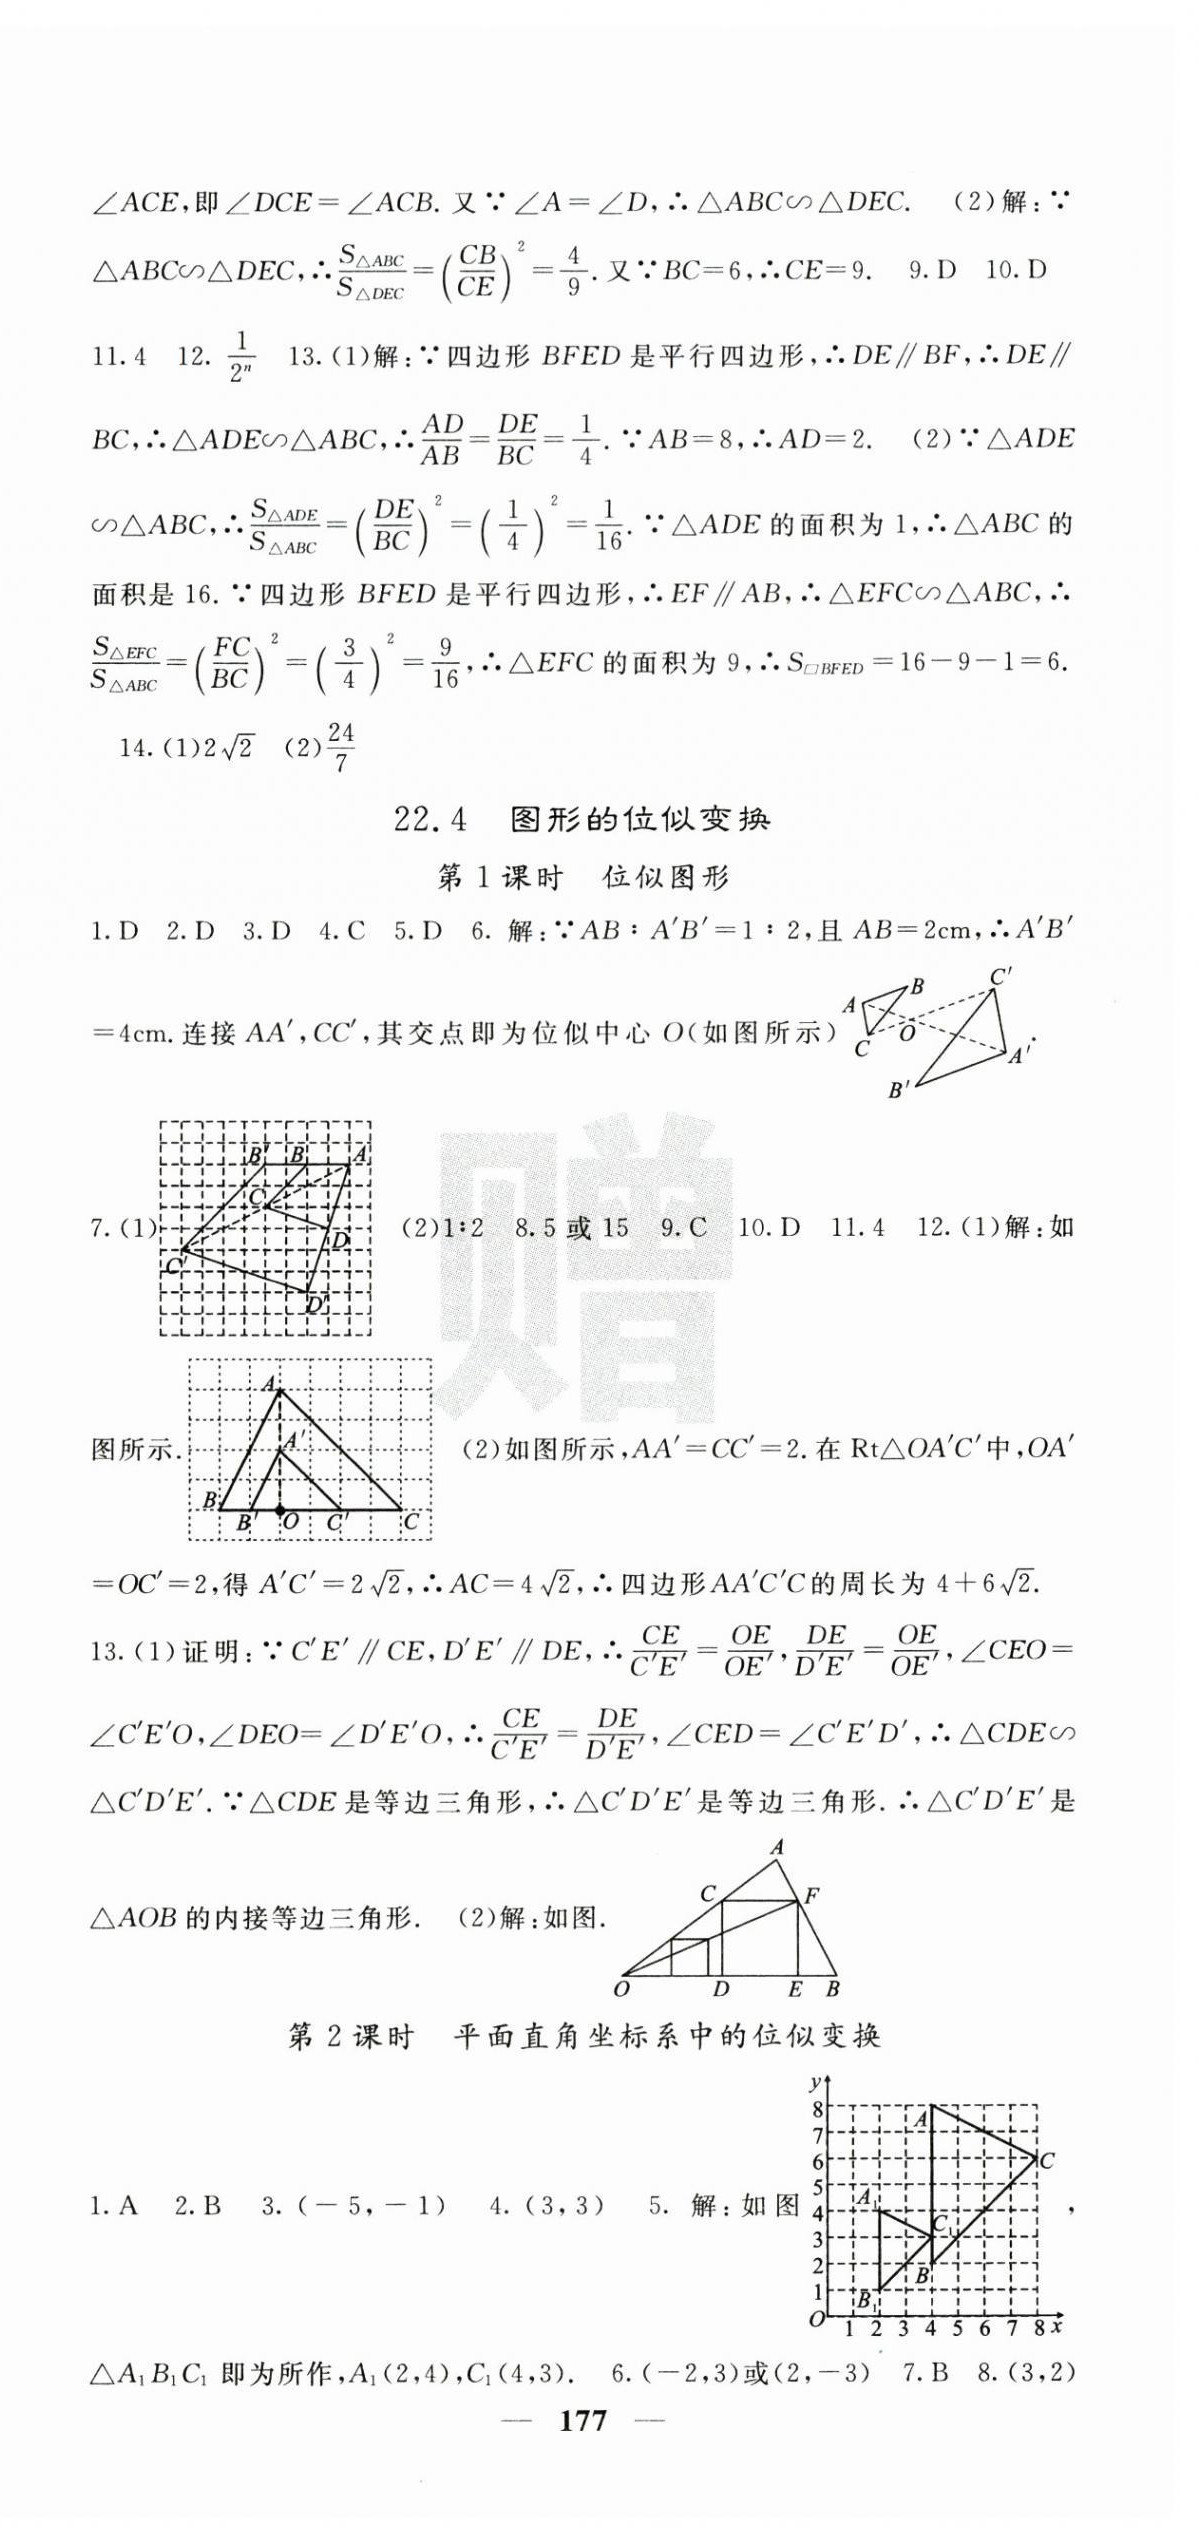 ∠ACE,即∠DCE=∠ACB. 又∵∠A=∠D,∴△ABC∽△DEC. (2)解:∵
△ABC∽△DEC,∴S△ABC/S△DEC=(CB/CE)²=4/9.又∵BC=6,∴CE=9. 9.D 10.D
11.4 12. 1/2ⁿ 13.(1)解:∵四边形 BFED 是平行四边形,∴DE∥BF,∴DE∥
BC,∴△ADE∽△ABC,∴AD/AB=DE/BC=1/4.∵AB=8,∴AD=2. (2)∵△ADE
∽△ABC,∴S△ADE/S△ABC=(DE/BC)²=(1/4)²=1/16.∵△ADE 的面积为 1,∴△ABC 的
面积是 16.∵四边形 BFED 是平行四边形,∴EF∥AB,∴△EFC∽△ABC,∴
S△EFC/S△ABC=(FC/BC)²=(3/4)²=9/16,∴△EFC 的面积为 9,∴S▱BFED=16-9-1=6.
14.(1)2√2 (2)24/7
22.4 图形的位似变换
第1课时 位似图形
1.D 2.D 3.D 4.C 5.D 6. 解:∵AB∶A′B′=1∶2,且 AB=2cm,∴A′B′
=4cm.连接 AA′,CC′,其交点即为位似中心 O(如图所示) A B C O C′ A′ B′ .
7.(1) B′ B A C D C′ D′ (2)1∶2 8.5 或 15 9.C 10.D 11.4 12.(1)解:如
图所示. A A′ B B′ O C′ C (2)如图所示,AA′=CC′=2.在 Rt△OA′C′中,OA′
=OC′=2,得 A′C′=2√2,∴AC=4√2,∴四边形AA′C′C的周长为 4+6√2.
13.(1)证明:∵C′E′∥CE,D′E′∥DE,∴CE/C′E′=OE/OE′,DE/D′E′=OE/OE′,∠CEO=
∠C′E′O,∠DEO=∠D′E′O,∴CE/C′E′=DE/D′E′,∠CED=∠C′E′D′,∴△CDE∽
△C′D′E′.∵△CDE 是等边三角形,∴△C′D′E′是等边三角形.∴△C′D′E′是
△AOB 的内接等边三角形. (2)解:如图. A C F O D E B
第2课时 平面直角坐标系中的位似变换
1.A 2.B 3.(-5,-1) 4.(3,3) 5. 解:如图 y 8 7 6 5 4 3 2 1 O 1 2 3 4 5 6 7 8 x A C B A₁ C₁ B₁ ,
△A₁B₁C₁ 即为所作,A₁(2,4),C₁(4,3). 6.(-2,3)或(2,-3) 7.B 8.(3,2)
— 177 —
赠